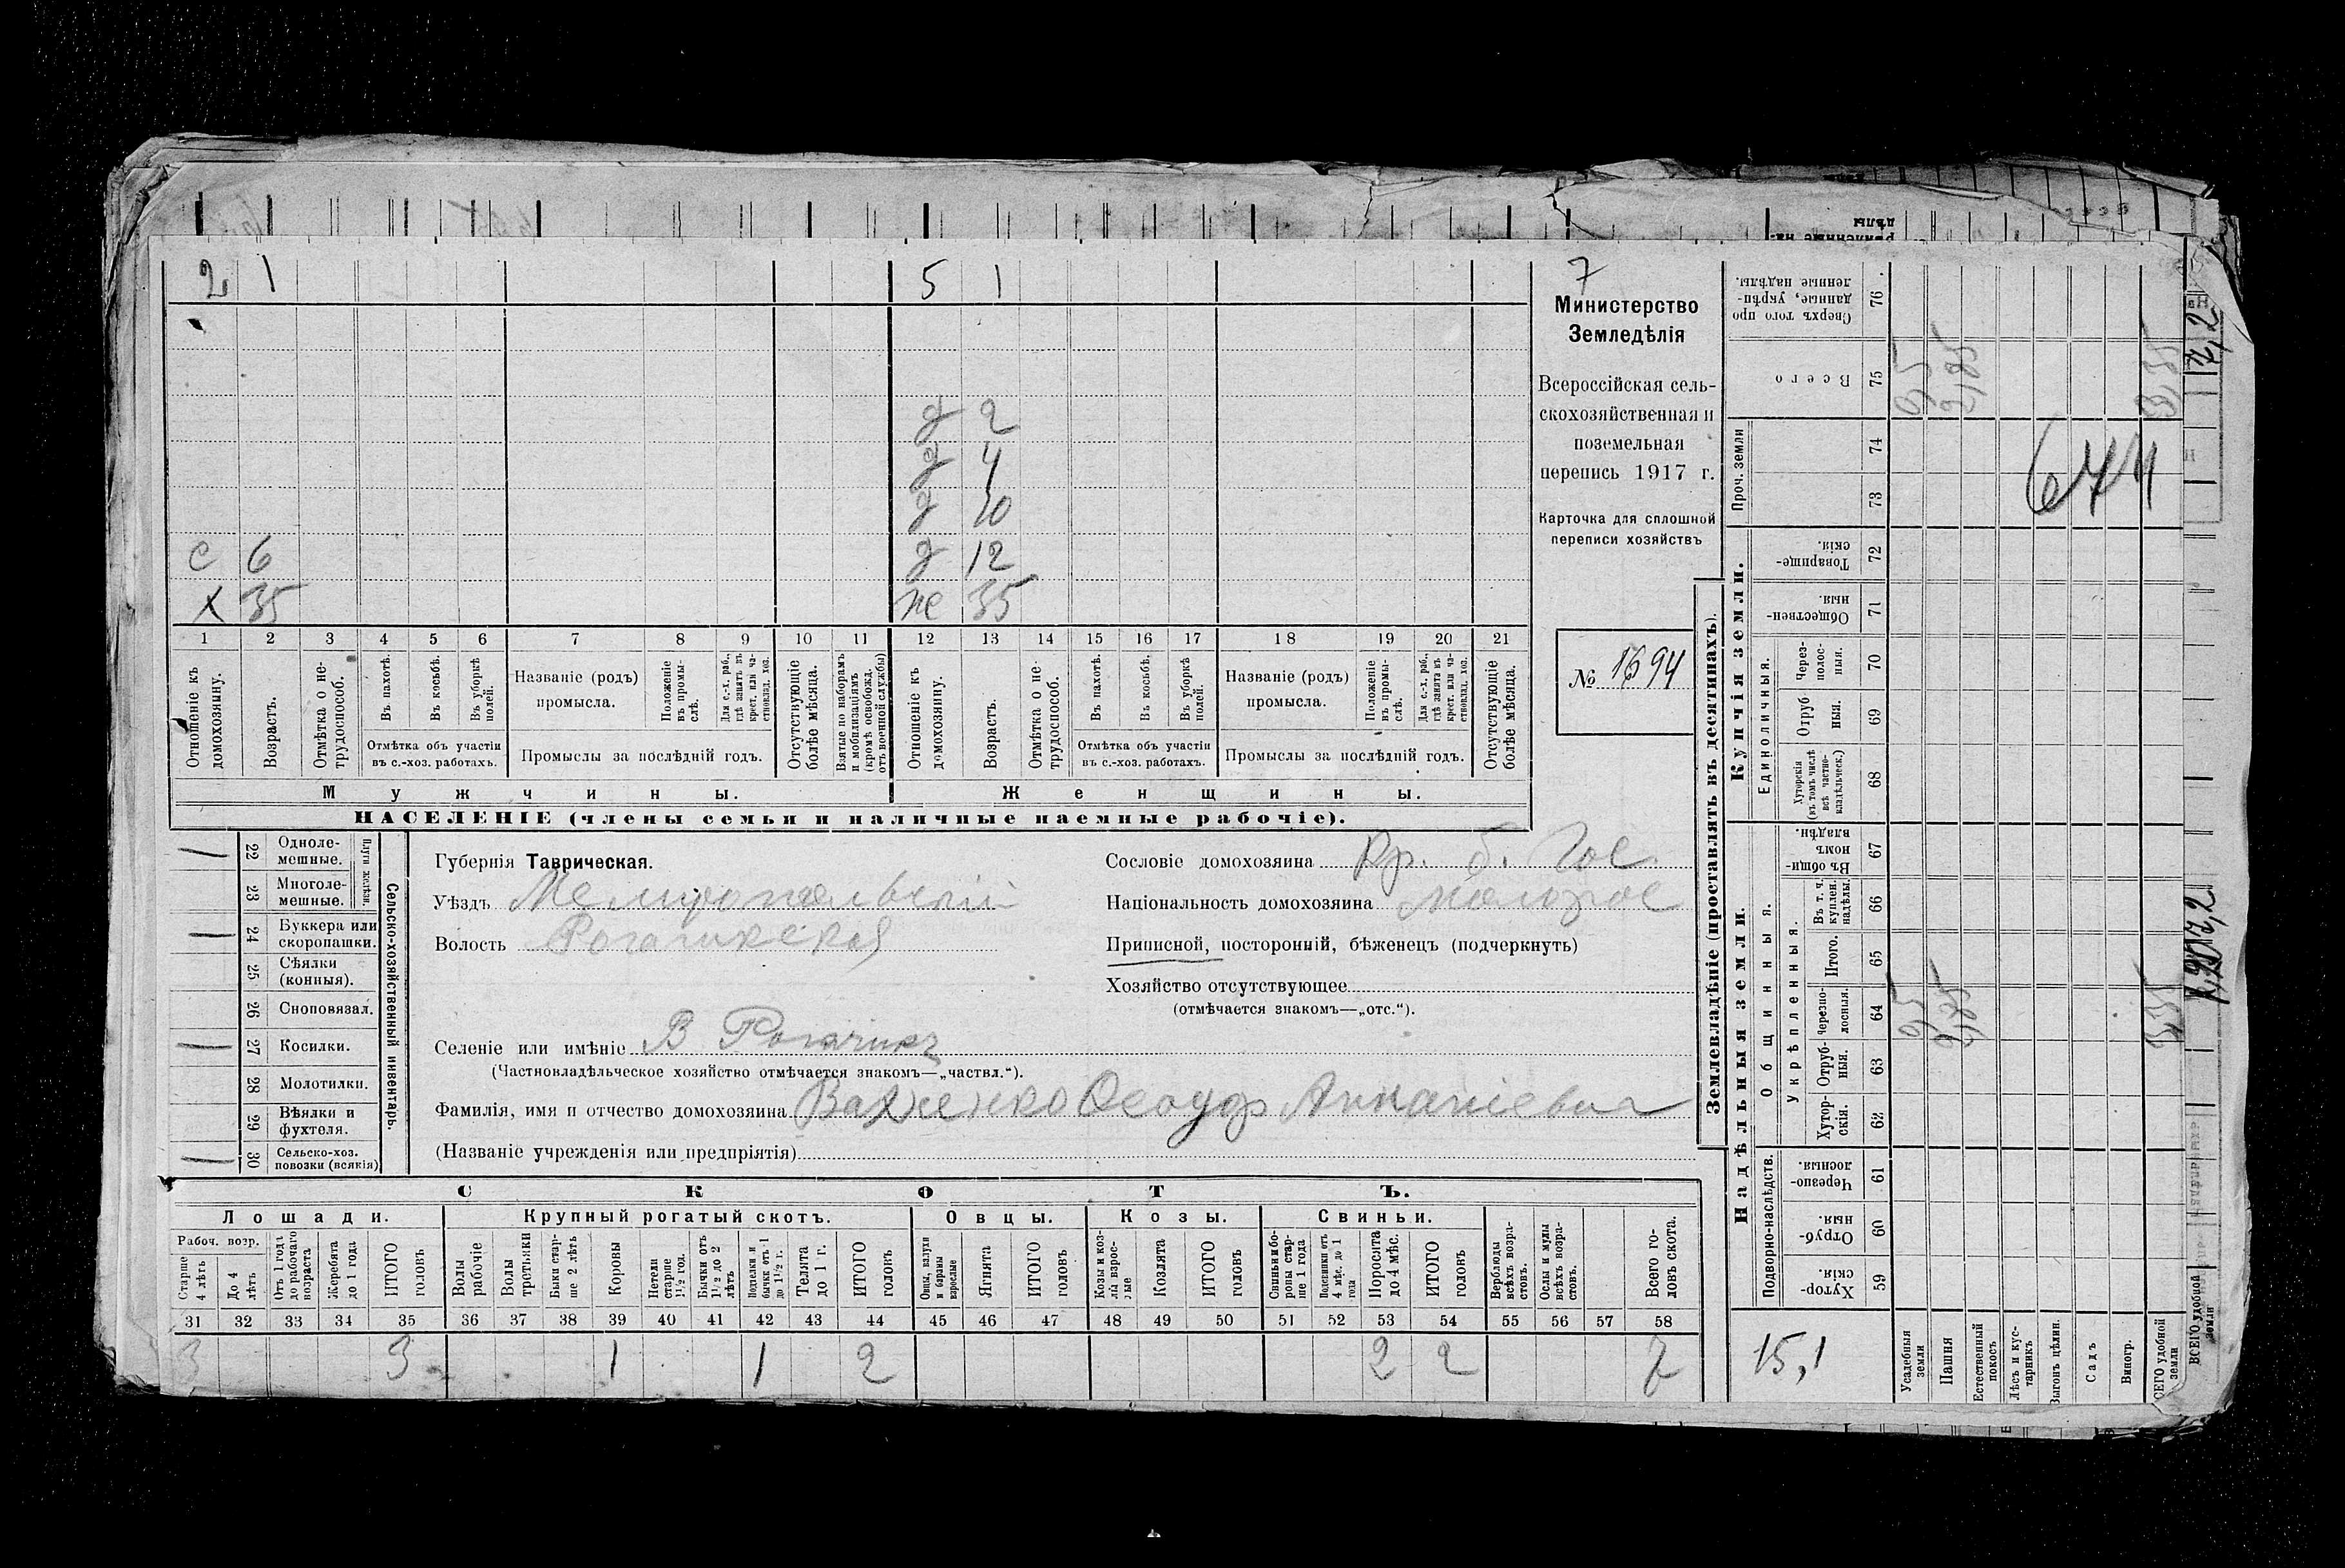 2 1 5 1 7
Министерство
Земледѣлія
Всероссійская сель-
скохозяйственная и
поземельная
перепись 1917 г.
Карточка для сплошной
переписи хозяйствъ
№ 1694
д 2
д 4
д 10
с 6 д 12
х 35 же 35
1 2 3 4 5 6 7 8 9 10 11 12 13 14 15 16 17 18 19 20 21
Отношеніе къ домохозяину.
Возрастъ.
Отмѣтка о не-трудоспособ.
Въ пахотѣ.
Въ косьбѣ.
Въ уборкѣ полей.
Отмѣтка объ участіи
въ с.-хоз. работахъ.
Названіе (родъ)
промысла.
Положеніе въ промы-слѣ.
Для с.-х. раб., гдѣ занятъ въ крест. или ча-стновлад. хоз.
Промыслы за послѣдній годъ.
Отсутствующіе болѣе мѣсяца.
Взятые по наборамъ и мобилизаціямъ (кромѣ освобожд. отъ военной службы)
Отношеніе къ домохозяину.
Возрастъ.
Отмѣтка о не-трудоспособ.
Въ пахотѣ.
Въ косьбѣ.
Въ уборкѣ полей.
Отмѣтка объ участіи
въ с.-хоз. работахъ.
Названіе (родъ)
промысла.
Положеніе въ промы-слѣ.
Для с.-х. раб., гдѣ занята въ крест. или ча-стновлад. хоз.
Промыслы за послѣдній годъ.
Отсутствующіе болѣе мѣсяца.
Мужчины. Женщины.
НАСЕЛЕНІЕ (члены семьи и наличные наемные рабочіе).
Сельско-хозяйственный инвентарь.
Плуги желѣзн.
22 Одноле-мешные.
23 Многоле-мешные.
24 Буккера или скоропашки.
25 Сѣялки (конныя).
26 Сноповязал.
27 Косилки.
28 Молотилки.
29 Вѣялки и фухтеля.
30 Сельско-хоз. повозки (всякія)
Губернія Таврическая.
Уѣздъ Мелитопольскій
Волость Рогачикская
Селеніе или имѣніе В Рогачикъ
(Частновладѣльческое хозяйство отмѣчается знакомъ—„частвл.“).
Фамилія, имя и отчество домохозяина Важненко Феодор Ананіевич
(Названіе учрежденія или предпріятія)
Сословіе домохозяина кр. б. Гос
Національность домохозяина малорос
Приписной, посторонній, бѣженецъ (подчеркнуть)
Хозяйство отсутствующее
(отмѣчается знакомъ—„отс.“).
СКОТЪ.
Лошади. Крупный рогатый скотъ. Овцы. Козы. Свиньи.
Рабоч. возр.
Старше 4 лѣтъ
До 4 лѣтъ
Отъ 1 года до рабочаго возраста
Жеребята до 1 года
ИТОГО головъ
Волы рабочіе
Волы третьяки
Быки стар-ше 2 лѣтъ
Коровы
Нетели старше 1½ год.
Бычки отъ 1½ до 2 лѣтъ
Телята до 1 г.
ИТОГО головъ
Овцы, валухи и бараны взрослые
Ягнята
ИТОГО головъ
Козлята
ИТОГО головъ
Свиньи и бо-ровы стар-ше 1 года
Подсвинки отъ 4 мѣс. до 1 года
Поросята до 4 мѣс.
ИТОГО головъ
Верблюды всѣхъ возра-стовъ.
Ослы и мулы всѣхъ возра-стовъ.
Всего го-ловъ скота.
31 32 33 34 35 36 37 38 39 40 41 42 43 44 45 46 47 48 49 50 51 52 53 54 55 56 57 58
3 3 1 1 2 2 2 7
Землевладѣніе (проставлять въ десятинахъ).
Сверхъ того про данные, укрѣп-ленные надѣлы. 76
Всего 75
Проч. земли 74
73
Купчія земли.
Товарище-скія. 72
Общественныя. 71
Единоличныя.
Через-полос-ныя. 70
Отруб ныя. 69
Хуторскія (въ томъ числѣ всѣ частно-владѣльческ.) 68
Надѣльныя земли.
Общинныя.
Въ общи номъ владѣн. 67
Укрѣпленныя.
Въ т. ч. куплен. надѣлы. 66
Итого. 65
Черезпо-лосныя. 64
Отруб-ныя. 63
Хутор-скія. 62
Подворно-наслѣдств.
Черезпо-лосныя. 61
Отруб-ныя. 60
Хутор-скія. 59
15,1
Усадебныя земли
Пашня
Естественный покосъ
Лѣсъ и кус-тарникъ
Выгонъ цѣлин.
Садъ
Виногр.
ВСЕГО удобной земли